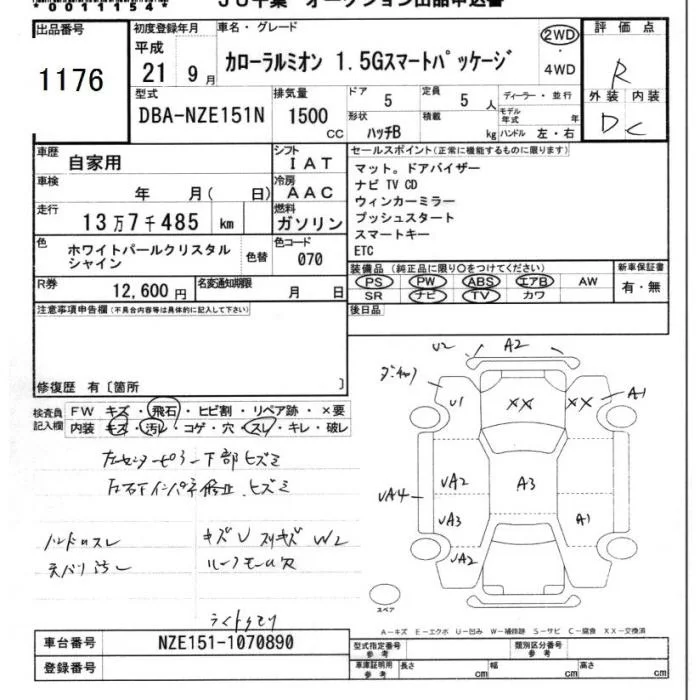 *00111544*
JU千葉 オークション出品申込書
出品番号
1176
初度登録年月
平成
21年 9月
車名・グレード
カローラルミオン 1.5Gスマートパッケージ
2WD
・
4WD
評価点
R
外装 内装
D C
型式
DBA-NZE151N
排気量
1500
CC
ドア
5
定員
5 人
形状
ハッチB
積載
kg
ディーラー・並行
モデル年式 年
ハンドル 左・右
車歴
自家用
シフト
IAT
車検
年 月( 日)
冷房
AAC
走行
13万7千485 km
燃料
ガソリン
色
ホワイトパールクリスタル
シャイン
色替
色コード
070
R券
12,600 円
名変通知期限
月 日
セールスポイント(正常に機能するものに限ります)
マット。ドアバイザー
ナビ TV CD
ウィンカーミラー
プッシュスタート
スマートキー
ETC
装備品 (純正品に限り○をつけてください)
PS PW ABS エアB AW
SR ナビ TV カワ
新車保証書
有・無
注意事項申告欄(不具合内容等は具体的に記入して下さい)
後日品
修復歴 有〔箇所 〕
検査員
記入欄
FW キズ・飛石・ヒビ割・リペア跡・×要
内装 キズ・汚レ・コゲ・穴・スレ・キレ・破レ
左センターピラー下部ヒズミ
ハンドルスレ
キズU スリキズ W2
天バリ汚レ
ルーフモール欠
ライトクモリ
U2 A2
U1
XX
XX
A1
UA2
A3
UA4
UA3
A1
UA2
スペア
A-キズ E-エクボ U-凹み W-補修跡 S-サビ C-腐食 XX-交換済
車台番号
NZE151-1070890
登録番号
型式指定番号
参考
類別区分番号
参考
車庫証明用
参考
長さ cm
幅 cm
高さ cm